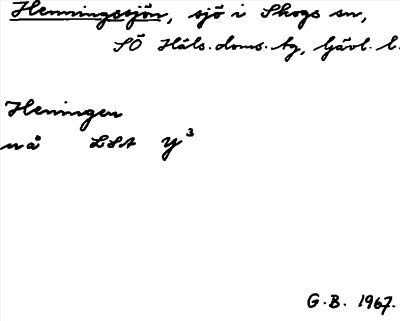 Henningssjön, sjö i Skogs sn,
SÖ Häls. doms. tg, Gävl. l.
Heningen
nå LSA Y³
G.B. 1967.